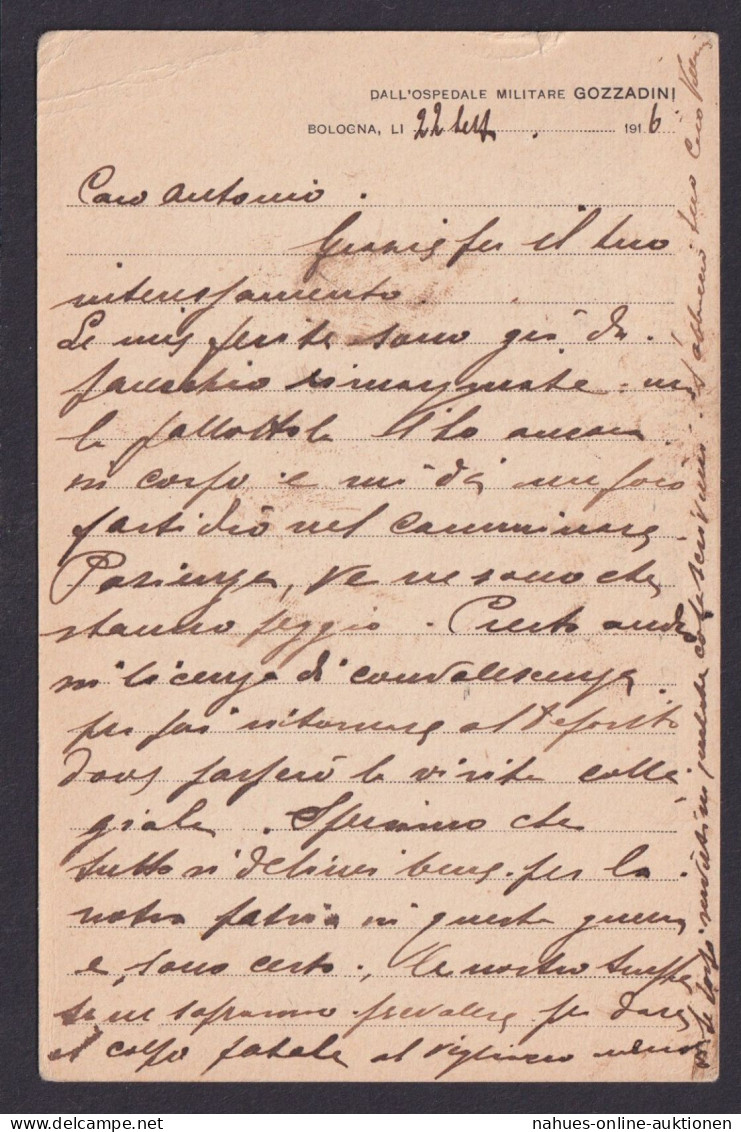 DALL'OSPEDALE MILITARE GOZZADINI
BOLOGNA, LI 22 Sett. 1916
Caro Antonio.
Grazie per il tuo
interessamento.
Le mie ferite sono già da
parecchio rimarginate ma
la pallottola l'ho ancora
in corpo e mi dà un poco
fastidio nel camminare
Pazienza, ve ne sono che
stanno peggio. Presto andrò
in licenza di convalescenza
per poi ritornare al deposito
dove passerò la visita colle
giale. Speriamo che
tutto si delinei bene per la
nostra patria in questa guerra
e, sono certo, le nostre truppe
sapranno prevalere per dare
il colpo fatale al vigliacco nemico
nahues-online-auktionen.com